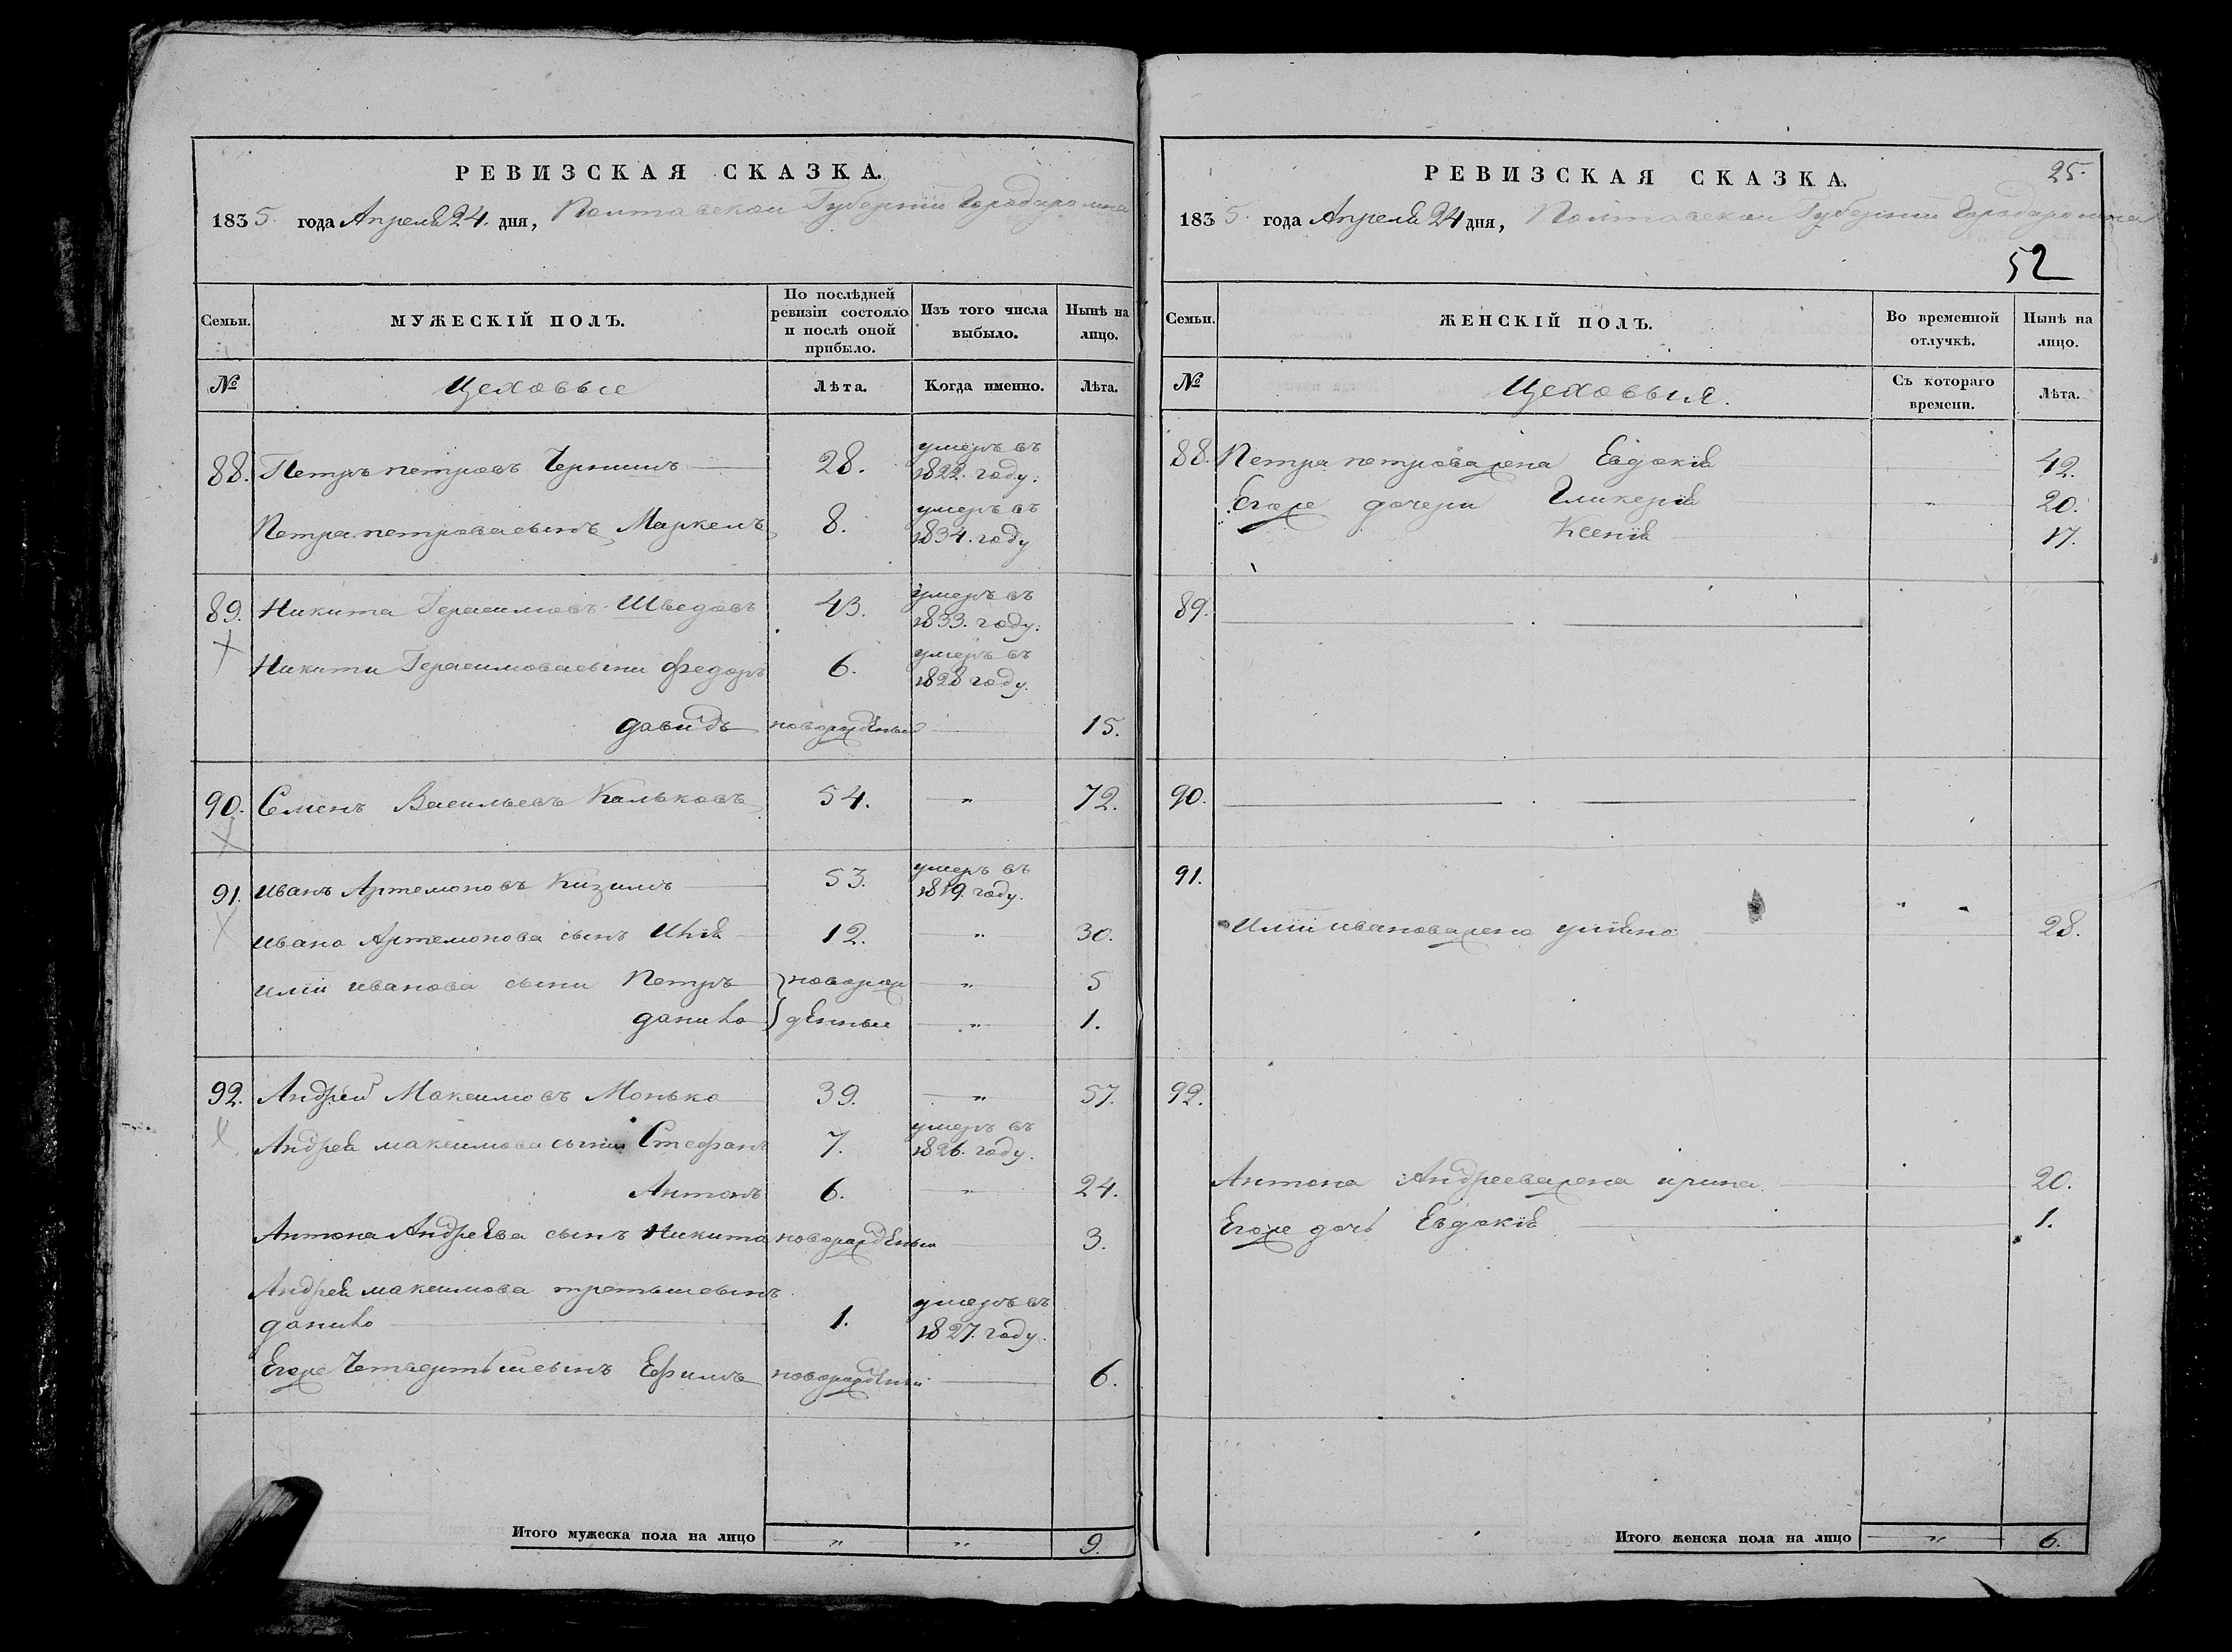 РЕВИЗСКАЯ СКАЗКА.
1835. года Апреля 24. дня, Полтавской Губернии Города Ромна
Семьи.
МУЖЕСКІЙ ПОЛЪ.
По послѣдней ревизіи состояло и послѣ оной прибыло.
Изъ того числа выбыло.
Нынѣ на лицо.
№
Цеховые
Лѣта.
Когда именно.
Лѣта.
88. Петръ петровъ Чернишъ 28. умеръ въ 1822. году.
Петра петрова сынъ Маркелъ 8. умеръ въ 1834. году
89. Никита Герасимовъ Шведовъ 43. умеръ въ 1833. году.
Никити Герасимова сыни Федоръ 6. умеръ въ 1828 году.
давидъ новорожденый 15.
90. Семенъ Васильевъ Кальковъ 54. " 72.
91. иванъ Артемоновъ Кизимъ 53. умеръ въ 1819. году.
ивана Артемонова сынъ Илія 12. " 30.
иліи иванова сыни Петръ новорож " 5
данило денные " 1.
92. Андрей Максимовъ Монько 39. " 57.
Андрея максимова сыни Стефанъ 7. умеръ въ 1826. году.
Антонъ 6. " 24.
Антона Андреева сынъ Никита новорожденый 3.
Андрея максимова третьи сынъ
данило 1. умеръ въ 1827. году.
Егоже Четвертый сынъ Ефимъ новорожденый 6.
Итого мужеска пола на лицо " " 9.
РЕВИЗСКАЯ СКАЗКА.
25.
1835. года Апреля 24 дня, Полтавской Губернии Города Ромна
52
Семьи.
ЖЕНСКІЙ ПОЛЪ.
Во временной отлучкѣ.
Нынѣ на лицо.
№
Цеховыя.
Съ котораго времени.
Лѣта.
88. Петра петрова жена Евдокія 42.
Егоже дочери Гликерія " 20.
Ксенія 17.
89.
90.
91.
Иліи иванова жена уліяна 28.
92.
Антона Андреева жена ирина 20.
Егоже дочь Евдокія 1.
Итого женска пола на лицо " 6.